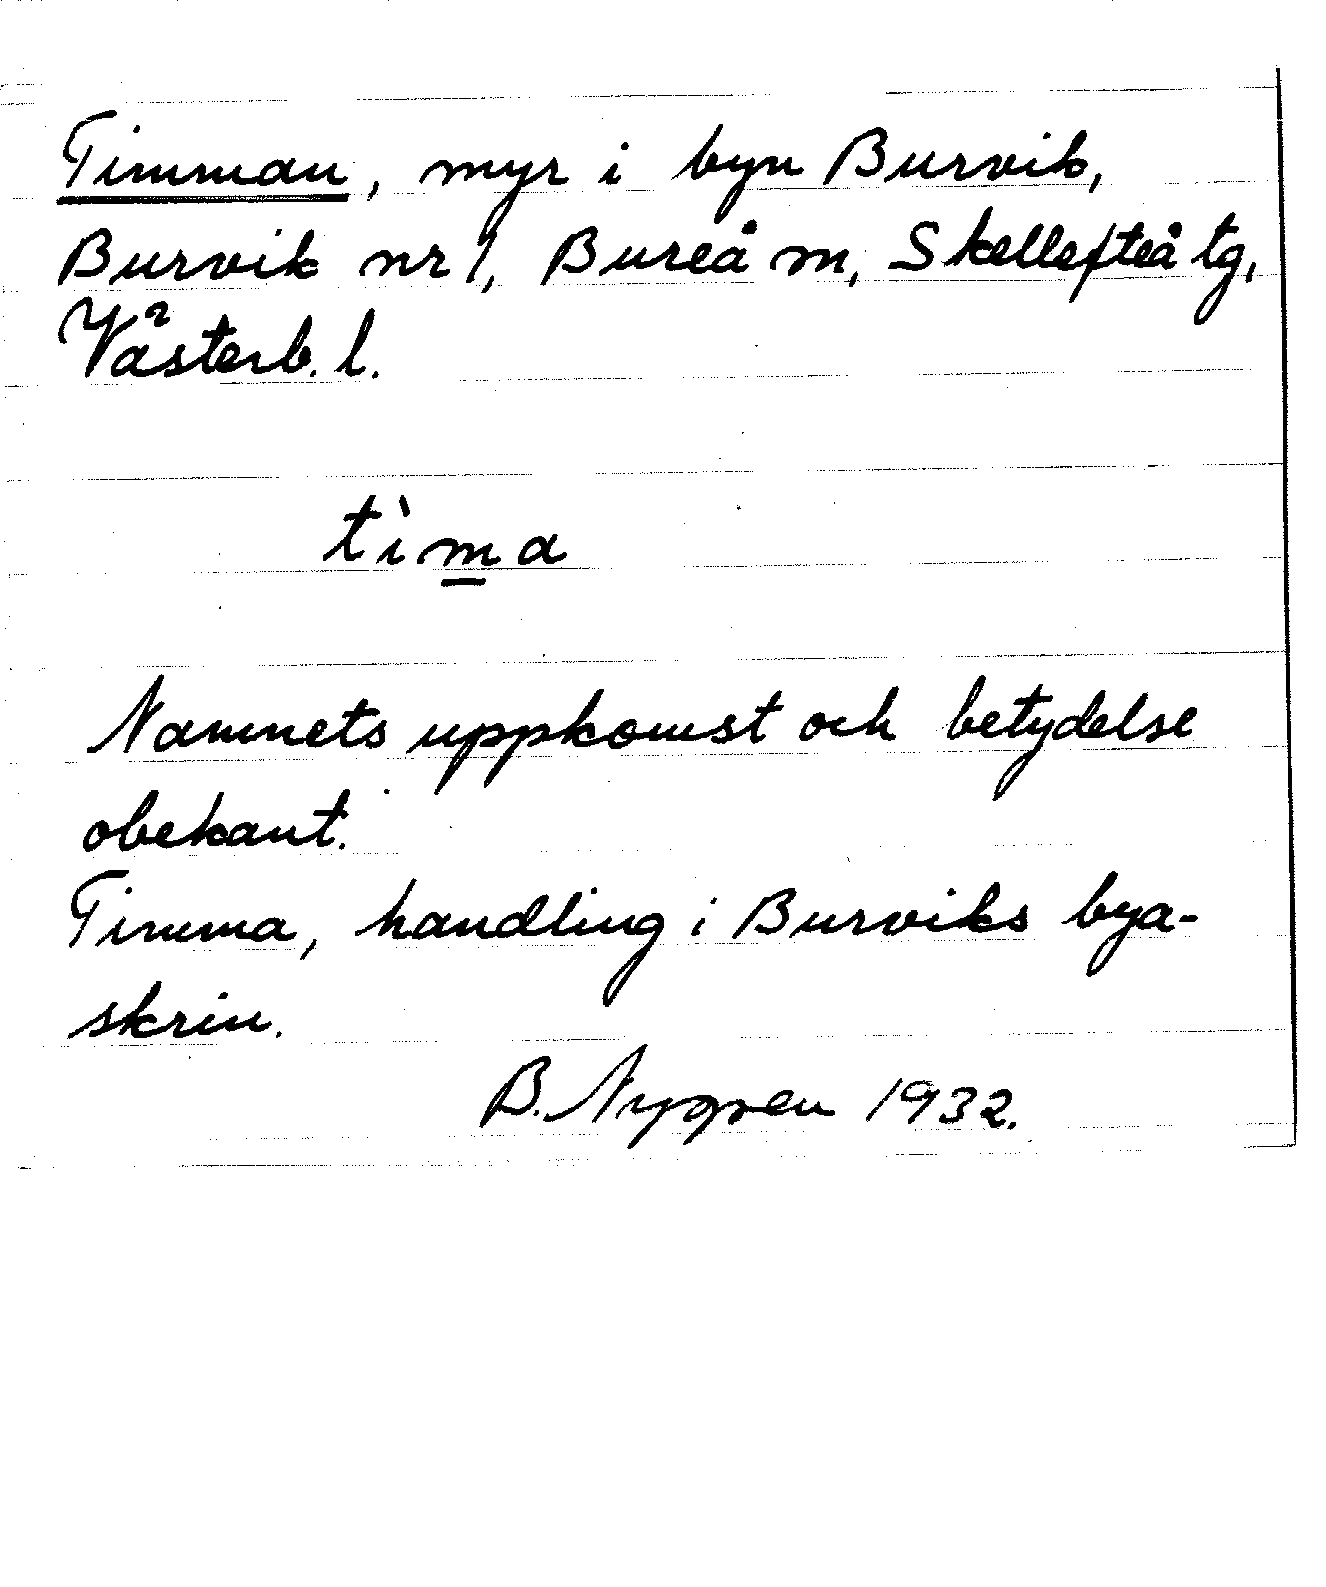 Timman, myr i byn Burvik,
Burvik nr 1, Bureå m, Skellefteå tg,
Västerb. l.
tìma
Namnets uppkomst och betydelse
obekant.
Timma, handling i Burviks bya-
skrin.
B. Nygren 1932.